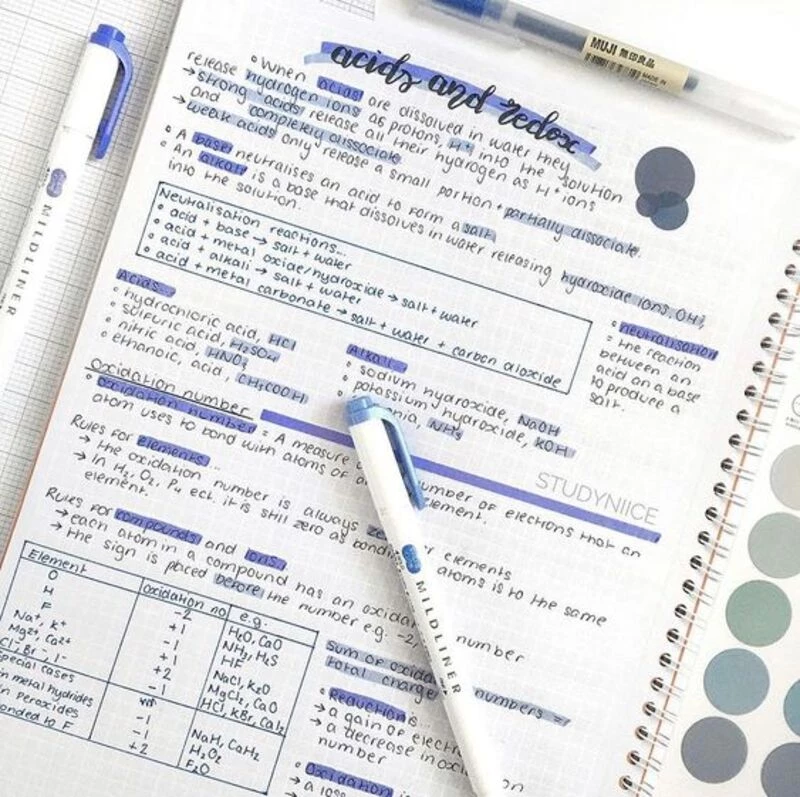 MUJI 無印良品
MADE IN
acids and redox
• When acids are dissolved in water they
release hydrogen ions as protons, H⁺ into the solution
→ strong acids release all their hydrogen as H⁺ ions
and completely dissociate
→ weak acids only release a small portion + partially dissociate.
• A base neutralises an acid to form a salt
• An alkali is a base that dissolves in water releasing hydroxide ions, OH,
into the solution.
Neutralisation reactions...
• acid + base → salt + water
• acid + metal oxide/hydroxide → salt + water
• acid + alkali → salt + water
• acid + metal carbonate → salt + water + carbon dioxide
Acids...
• hydrochloric acid, HCl
• sulfuric acid, H₂SO₄
• nitric acid, HNO₃
• ethanoic, acid, CH₃COOH
Alkali...
• sodium hydroxide, NaOH
• potassium hydroxide, KOH
onia, NH₃
• neutralisation
= the reaction
between an
acid an a base
to produce a
salt.
Oxidation number
• oxidation number = A measure umber of electrons that an
atom uses to bond with atoms of a element.
STUDYNIICE
Rules for elements...
→ the oxidation number is always ze r elements
→ In H₂, O₂, P₄ ect. it is still zero as bond atoms is to the same
element.
Rules for compounds and ions.
→ each atom in a compound has an oxida number
→ the sign is placed before the number e.g. -2,
Element Oxidation no. e.g.
O -2 H₂O, CaO
H +1 NH₃, H₂S
F -1 HF
Na⁺, K⁺ +1 NaCl, K₂O
Mg²⁺, Ca²⁺ +2 MgCl₂, CaO
Cl⁻, Br⁻, I⁻ -1 HCl, KBr, CaI₂
special cases
n metal hydrides -1 NaH, CaH₂
n peroxides -1 H₂O₂
onded to F +2 F₂O
sum of oxida numbers =
total charge
• Reduction is...
→ a gain of elect
→ a decrease in oxi on
number
• Oxidation is
→ a lo
MILDLINER
MILDLINER